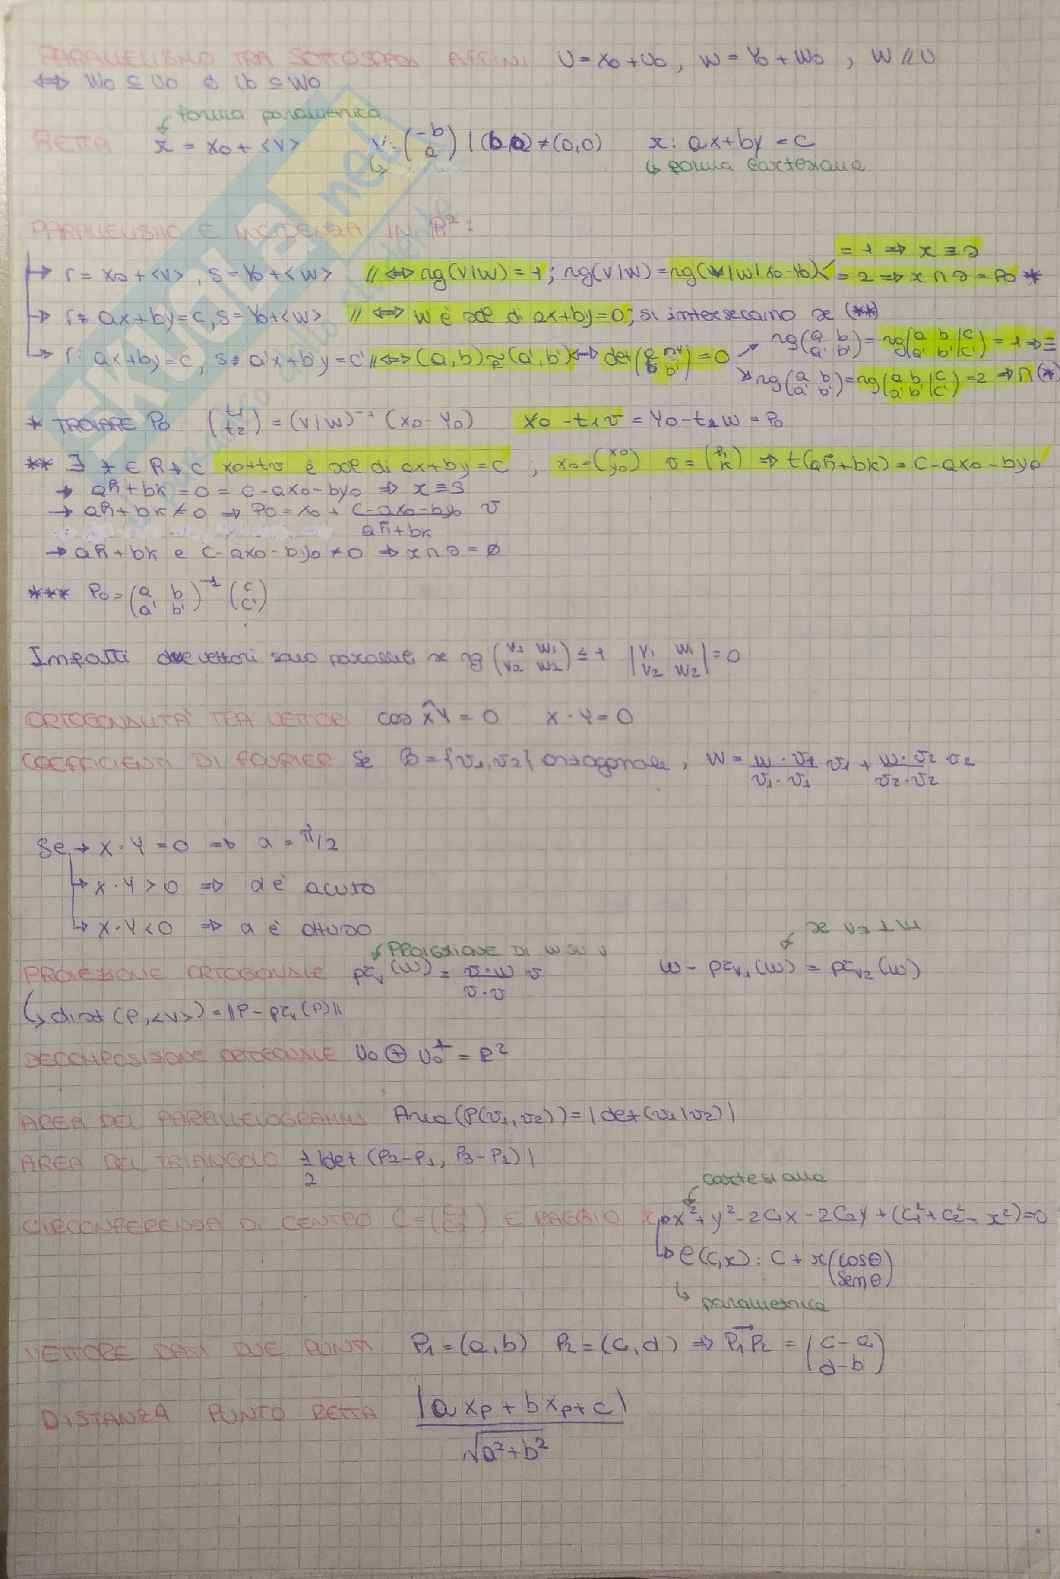 PARALLELISMO TRA SOTTOSPAZI AFFINI U = x0 + U0, W = Y0 + W0, W // U
⇔ W0 ⊆ U0 o U0 ⊆ W0
forma parametrica
RETTA r = x0 + <v> v = (-b a) | (b,a) ≠ (0,0) r: ax + by = c
↳ forma cartesiana
PARALLELISMO E INCIDENZA IN R²:
= 1 ⇒ r ≡ s
→ r = x0 + <v>, s = Y0 + <w> // ⇔ rg(v|w) = 1; rg(v|w) = rg(v|w|x0-y0) = 2 ⇒ r ∩ s = P0 *
→ r = ax + by = c, s = Y0 + <w> // ⇔ w è sol di ax + by = 0; si intersecano se (**)
→ r: ax + by = c, s = a'x + b'y = c' // ⇔ (a, b) (a', b') ⇔ det = 0 ↗ rg(a b a' b') = rg(a b|c a' b'|c') = 1 ⇒ ≡
↘ rg(a b a' b') = rg(a b|c a' b'|c') = 2 ⇒ ∩ (*)
* TROVARE P0 (t1 t2) = (v|w)⁻¹ (x0 - Y0) x0 - t1v = Y0 - t2w = P0
** ∃ t ∈ R t c x0 + tv è sol di ax + by = c; x0 = (x0 y0) v = (h k) ⇒ t(ah + bk) = c - ax0 - by0
→ ah + bk = 0 = c - ax0 - by0 ⇒ r ≡ s
→ ah + bk ≠ 0 ⇒ P0 = x0 + (c - ax0 - by0)/(ah + bk) v
→ ah + bk e c - ax0 - by0 ≠ 0 ⇒ r ∩ s = ∅
*** P0 = (a b a' b')⁻¹ (c c')
Infatti due vettori sono paralleli se rg (v1 w1 v2 w2) ≤ 1 |v1 w1 v2 w2| = 0
ORTOGONALITÀ TRA VETTORI cos XY = 0 X · Y = 0
COEFFICIENTI DI FOURIER Se B = {v1, v2} ortogonale, W = (w · v1)/(v1 · v1) v1 + (w · v2)/(v2 · v2) v2
Se → X · Y = 0 ⇒ a = π/2
→ X · Y > 0 ⇒ a è acuto
→ X · Y < 0 ⇒ a è ottuso
PROIEZIONE DI W SU V se v1 ⊥ v2
PROIEZIONE ORTOGONALE prv(W) = (v · w)/(v · v) v W - prv1(W) = prv2(W)
↳ dist (P, <v>) = ||P - prv(P)||
DECOMPOSIZIONE ORTOGONALE U0 ⊕ U0⊥ = R²
AREA DEL PARALLELOGRAMMA Area (P(v1, v2)) = |det(v1|v2)|
AREA DEL TRIANGOLO 1/2 |det (P2 - P1, P3 - P1)|
cartesiana
CIRCONFERENZA DI CENTRO C = (c1 c2) E RAGGIO r x² + y² - 2c1x - 2c2y + (c1² + c2² - r²) = 0
↳ C(C,r): C + r(cosθ senθ)
↳ parametrica
VETTORE DATI DUE PUNTI P1 = (a, b) P2 = (c, d) ⇒ P1P2 = (c-a d-b)
DISTANZA PUNTO RETTA |axp + bxp + c| / √a² + b²